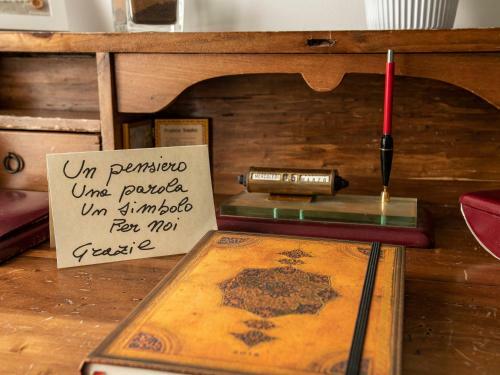 Un pensiero
Una parola
Un simbolo
Per noi
Grazie